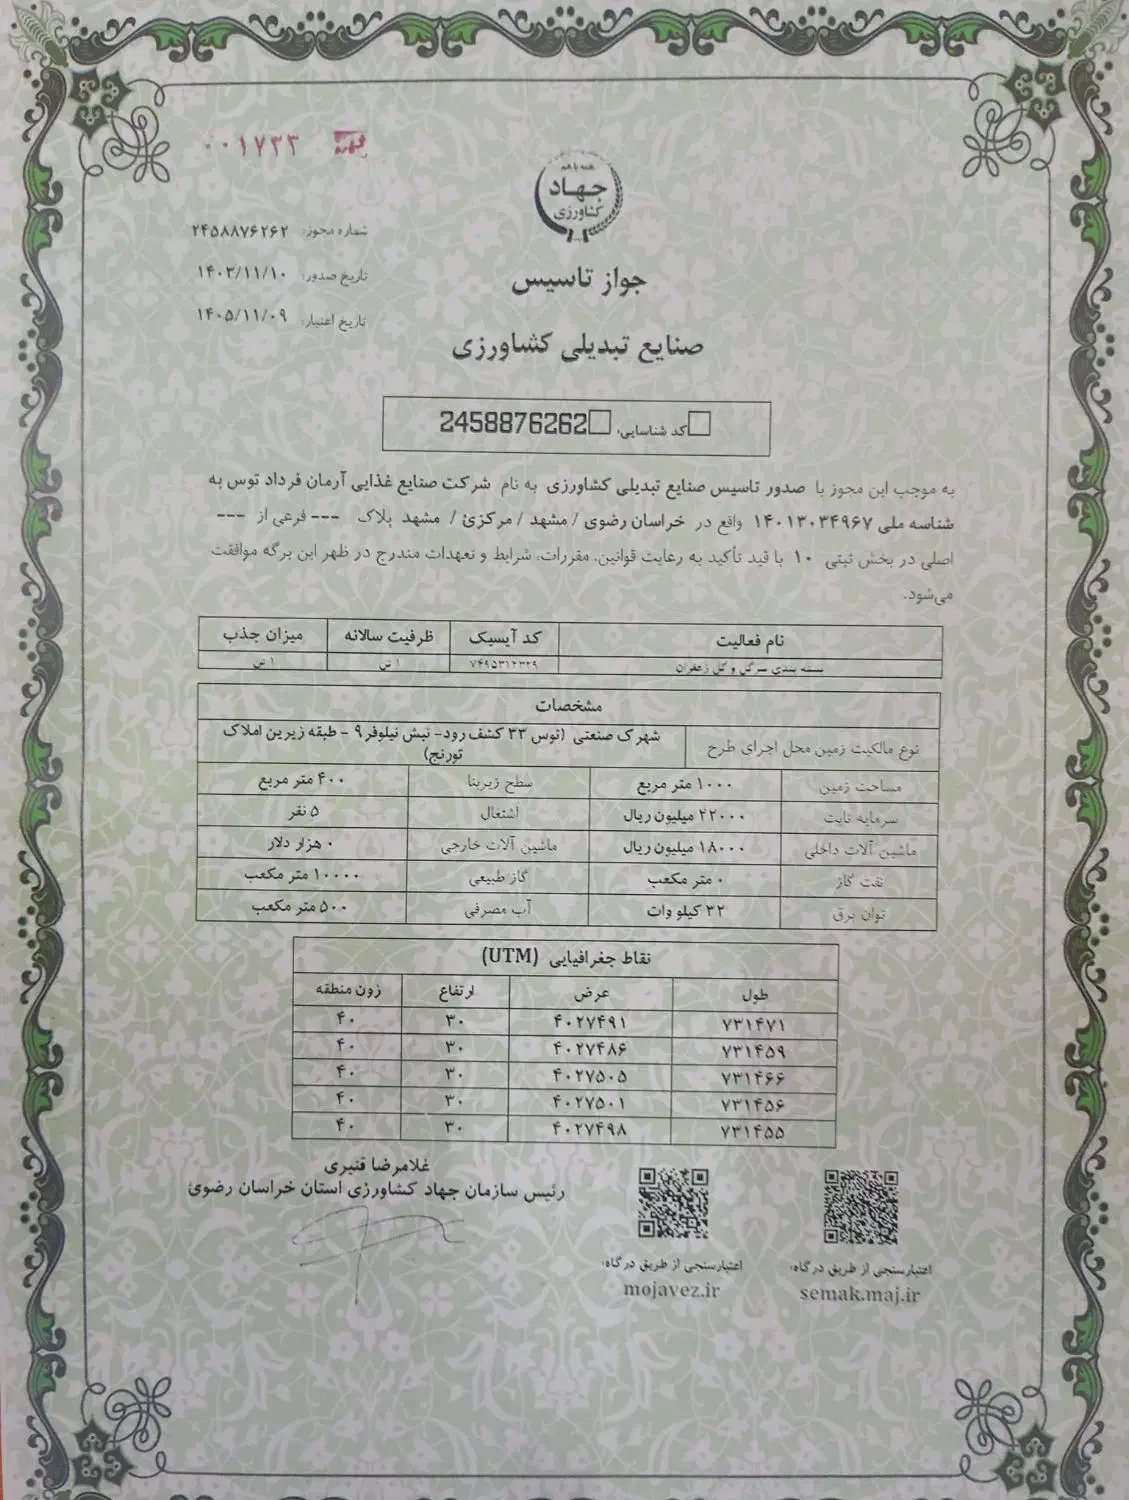 ۰۰۱۷۳۳
همه با هم
جهاد
کشاورزی
شماره مجوز: ۲۴۵۸۸۷۶۲۶۲
تاریخ صدور: ۱۴۰۳/۱۱/۱۰
تاریخ اعتبار: ۱۴۰۵/۱۱/۰۹
جواز تاسیس
صنایع تبدیلی کشاورزی
کد شناسایی: 2458876262
به موجب این مجوز با صدور تاسیس صنایع تبدیلی کشاورزی به نام شرکت صنایع غذایی آرمان فرداد توس به
شناسه ملی ۱۴۰۱۳۰۳۴۹۶۷ واقع در خراسان رضوی / مشهد / مرکزی / مشهد پلاک --- فرعی از ---
اصلی در بخش ثبتی ۱۰ با قید تأکید به رعایت قوانین، مقررات، شرایط و تعهدات مندرج در ظهر این برگه موافقت
می‌شود.
نام فعالیت کد آیسیک ظرفیت سالانه میزان جذب
بسته بندی سرگل و گل زعفران ۷۴۹۵۳۱۲۳۲۹ ۱ تن ۱ تن
مشخصات
نوع مالکیت زمین محل اجرای طرح شهرک صنعتی (توس ۳۳ کشف رود- نبش نیلوفر ۹ - طبقه زیرین املاک
تورنج)
مساحت زمین ۱۰۰۰ متر مربع سطح زیربنا ۴۰۰ متر مربع
سرمایه ثابت ۲۲۰۰۰ میلیون ریال اشتغال ۵ نفر
ماشین آلات داخلی ۱۸۰۰۰ میلیون ریال ماشین آلات خارجی ۰ هزار دلار
نفت گاز ۰ متر مکعب گاز طبیعی ۱۰۰۰۰ متر مکعب
توان برق ۳۲ کیلو وات آب مصرفی ۵۰۰ متر مکعب
نقاط جغرافیایی (UTM)
طول عرض ارتفاع زون منطقه
۷۳۱۴۷۱ ۴۰۲۷۴۹۱ ۳۰ ۴۰
۷۳۱۴۵۹ ۴۰۲۷۴۸۶ ۳۰ ۴۰
۷۳۱۴۶۶ ۴۰۲۷۵۰۵ ۳۰ ۴۰
۷۳۱۴۵۶ ۴۰۲۷۵۰۱ ۳۰ ۴۰
۷۳۱۴۵۵ ۴۰۲۷۴۹۸ ۳۰ ۴۰
غلامرضا قنبری
رئیس سازمان جهاد کشاورزی استان خراسان رضوی
اعتبارسنجی از طریق درگاه:
semak.maj.ir
اعتبارسنجی از طریق درگاه:
mojavez.ir